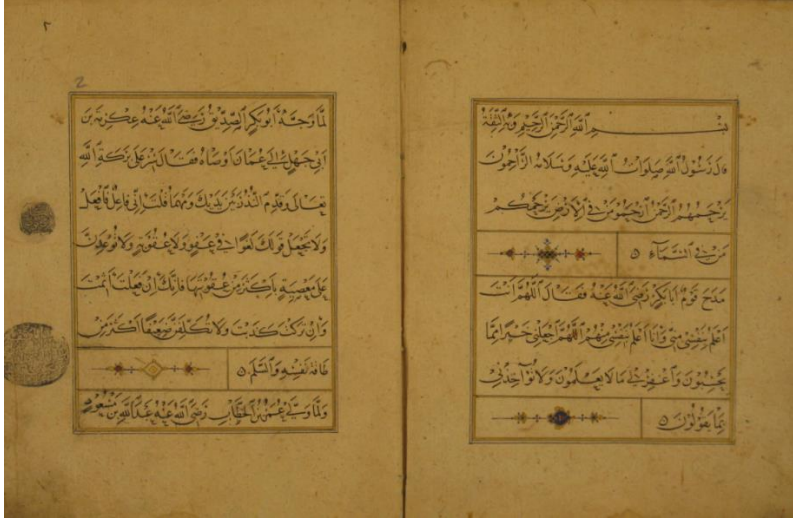 بسم الله الرحمن الرحيم وبه الثقة
قال رسول الله صلوات الله عليه وسلامه الراحمون
يرحمهم الرحمن ارحموا من في الارض يرحمكم
من في السماء
مدح قوم ابا بكر رضي الله عنه فقال اللهم انت
اعلم بنفسي مني وانا اعلم بنفسي منهم اللهم اجعلني خيرا مما
يحسبون واغفر لي ما لا يعلمون ولا تؤاخذني
بما يقولون
٢
2
لما وجه ابو بكر الصديق رضي الله عنه عكرمة بن
ابي جهل الى عمان اوصاه فقال سر على بركة الله
تعالى وقدم النذر بين يديك ومهما قلت اني فاعل فافعل
ولا تجعل قولك لغوا في عفو ولا عقوبة ولا توعدن
على معصية باكثر من عقوبتها فانك ان فعلت اثمت
وان تركت كذبت ولا تكلفن ضعيفا اكثر من
طاقة نفسه والسلم
ولما ولي عمر بن الخطاب رضي الله عنه عبد الله بن مسعود